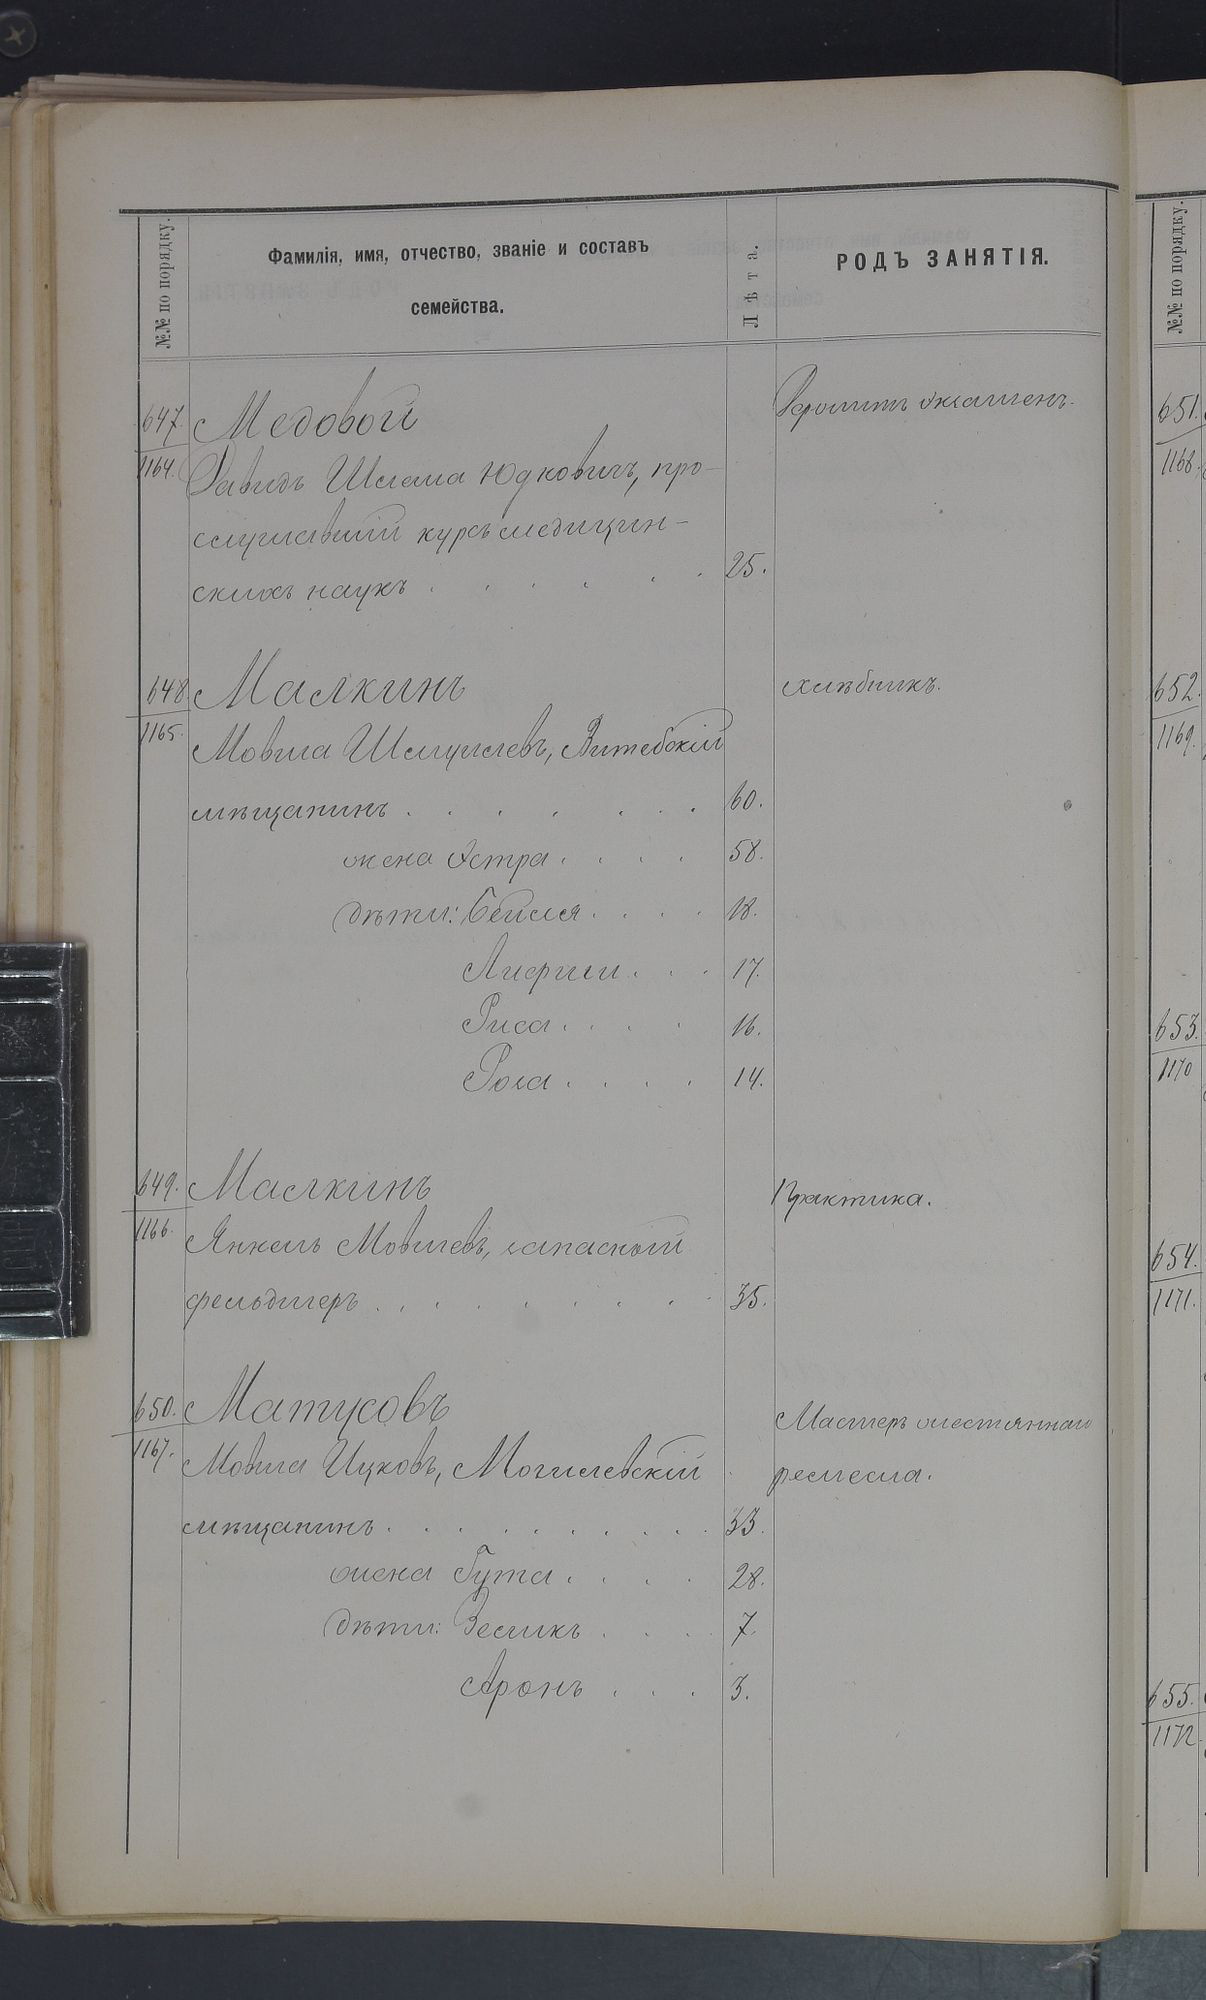 №№ по порядку.
Фамилія, имя, отчество, званіе и составъ
семейства.
Лѣта.
РОДЪ ЗАНЯТІЯ.
№№ по порядку.
647. Медовой
1164. Давидъ Шлема Юдковичъ, про-
слушавшій курсъ медицин-
скихъ наукъ . . . . . . 25.
Держитъ экзаменъ.
648. Малкинъ
хлѣбникъ.
1165. Мовша Шмуилевъ, Витебскій
мѣщанинъ . . . . . . 60.
жена Эстра . . . . 58.
дѣти: Бейля . . . . 18.
17.
Риса . . . . 16.
Роза . . . . 14.
649. Малкинъ
Практика.
1166. Янкель Мовшевъ, запасный
фельдшеръ . . . . . . . . . 35.
650. Матусовъ
Мастеръ жестяннаго
1167. Мовша Ицковъ, Могилевскій
ремесла.
мѣщанинъ . . . . . . . . . . 33.
жена Гута . . . . 28.
дѣти: Зеликъ . . . . 7.
Аронъ . . . 3.
651.
1168.
652.
1169.
653.
1170
654.
1171.
655.
1172.